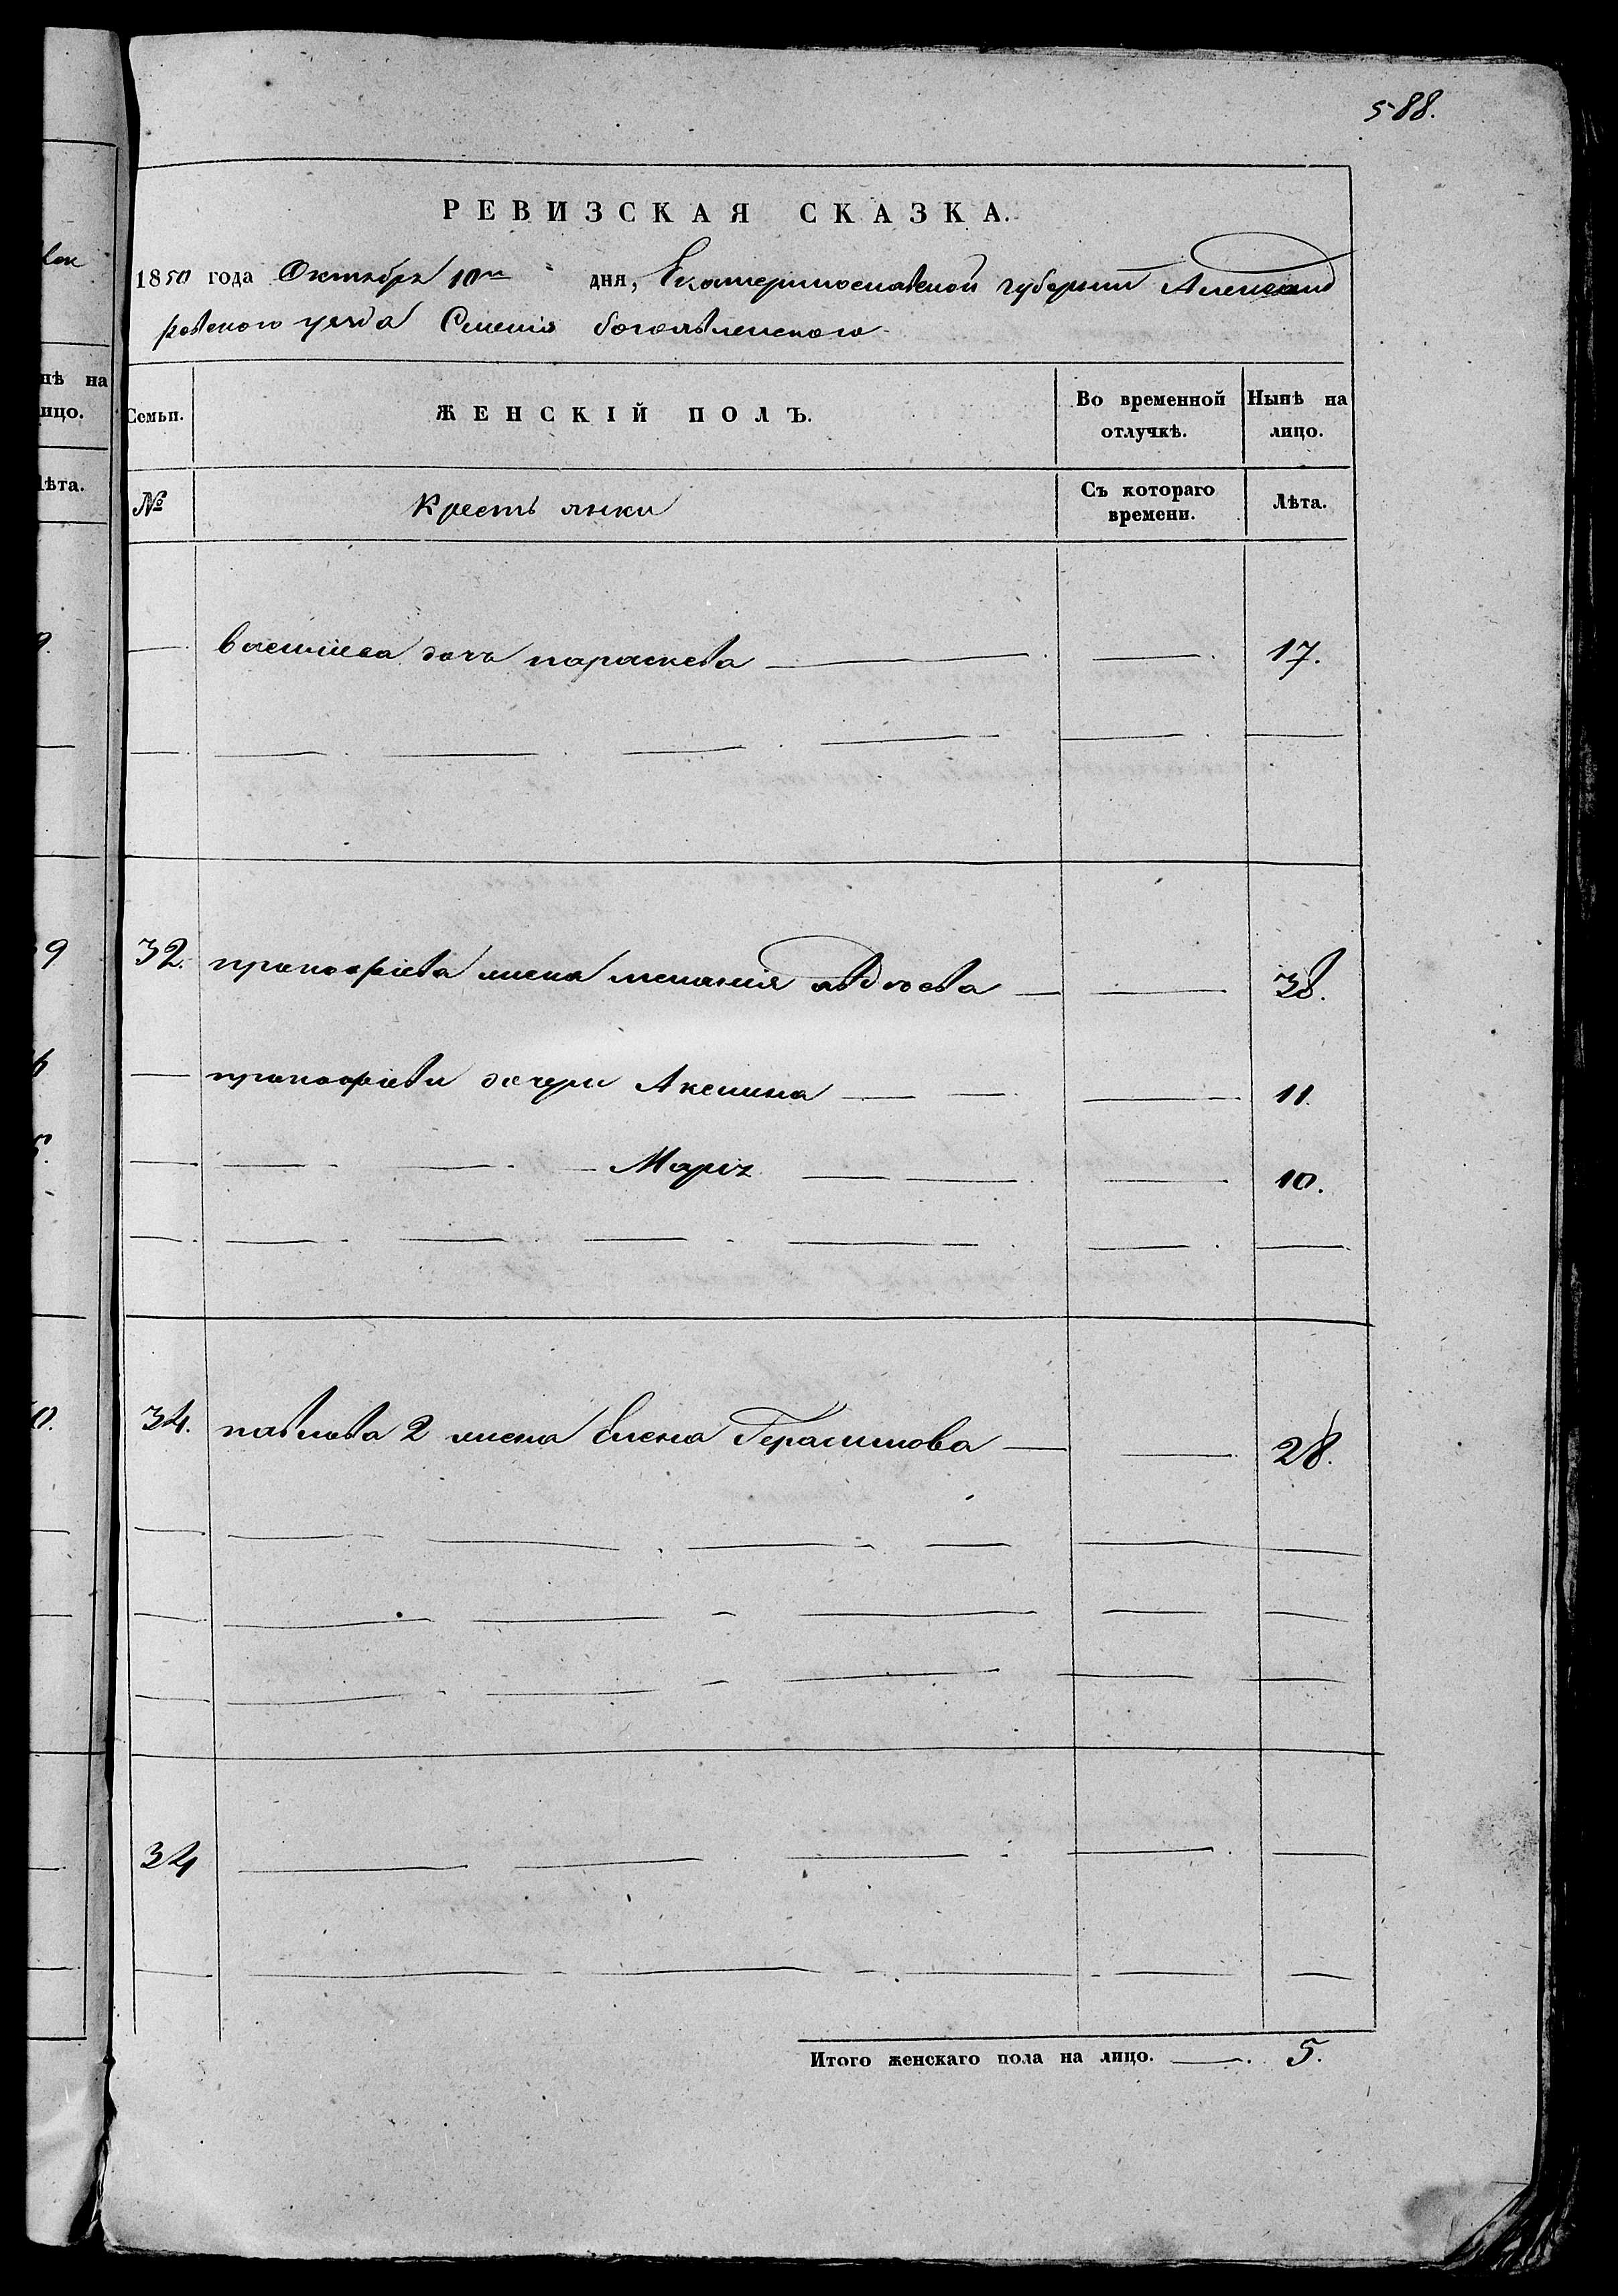 588.
РЕВИЗСКАЯ СКАЗКА.
1850 года Октября 10го дня, Екатеринославской губернии Александ
ровского уезда Сѣления богоявленского
нѣ на
ицо.
ѣта.
Семьи.
ЖЕНСКІЙ ПОЛЪ.
Во временной отлучкѣ.
Нынѣ на лицо.
№
Крестьянки
Съ котораго времени.
Лѣта.
василиса дочь параскева — — 17.
32. прокофиева жена мелания авдеева — — 38.
— прокофиеви дочери Аксинна — — 11.
— — — Мария — — 10.
34. павлова 2 жена Елена Герасимова — — 28.
34
Итого женскаго пола на лицо. — 5.